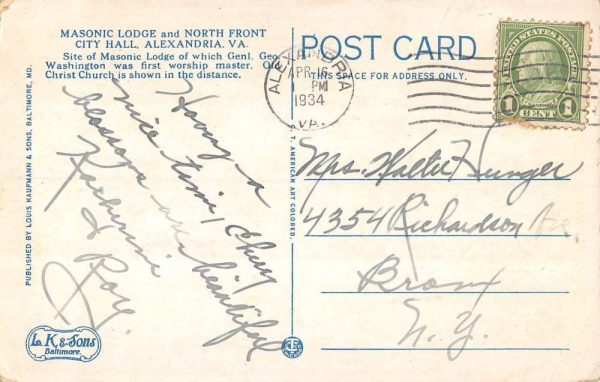 MASONIC LODGE AND NORTH FRONT
CITY HALL, ALEXANDRIA, VA.
Site of Masonic Lodge of which Genl. Geo.
Washington was first worship master. Old
Christ Church is shown in the distance.
Having a
nice time, Cherry
blossoms are beautiful
Katherine
& Roy.
PUBLISHED BY LOUIS KAUFMANN & SONS, BALTIMORE, MD.
L. K. & Sons
Baltimore.
C. T. AMERICAN ART COLORED
POST CARD
THIS SPACE FOR ADDRESS ONLY.
ALEXANDRIA
APR 16
PM
1934
VA.
UNITED STATES POSTAGE
1 CENT 1
Mrs. Walter Hunger
4354 Richardson Ave.
Bronx
N. Y.